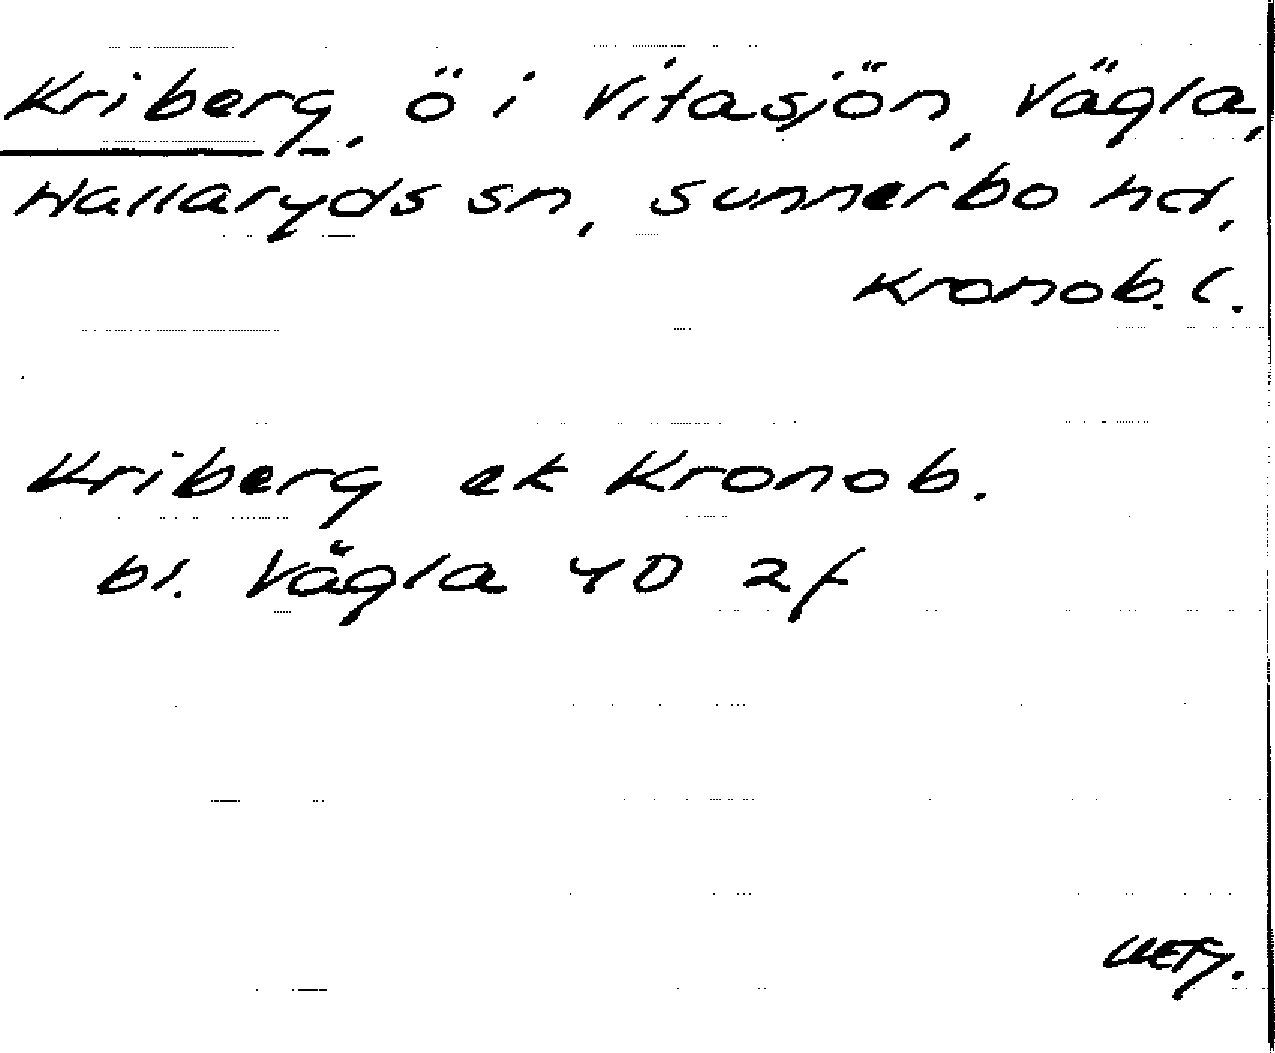 Kriberg, ö i Vitasjön, Vägla,
Hallaryds sn, Sunnerbo hd,
Kronob. l.
Kriberg ek Kronob.
bl. Vägla 4D 2f